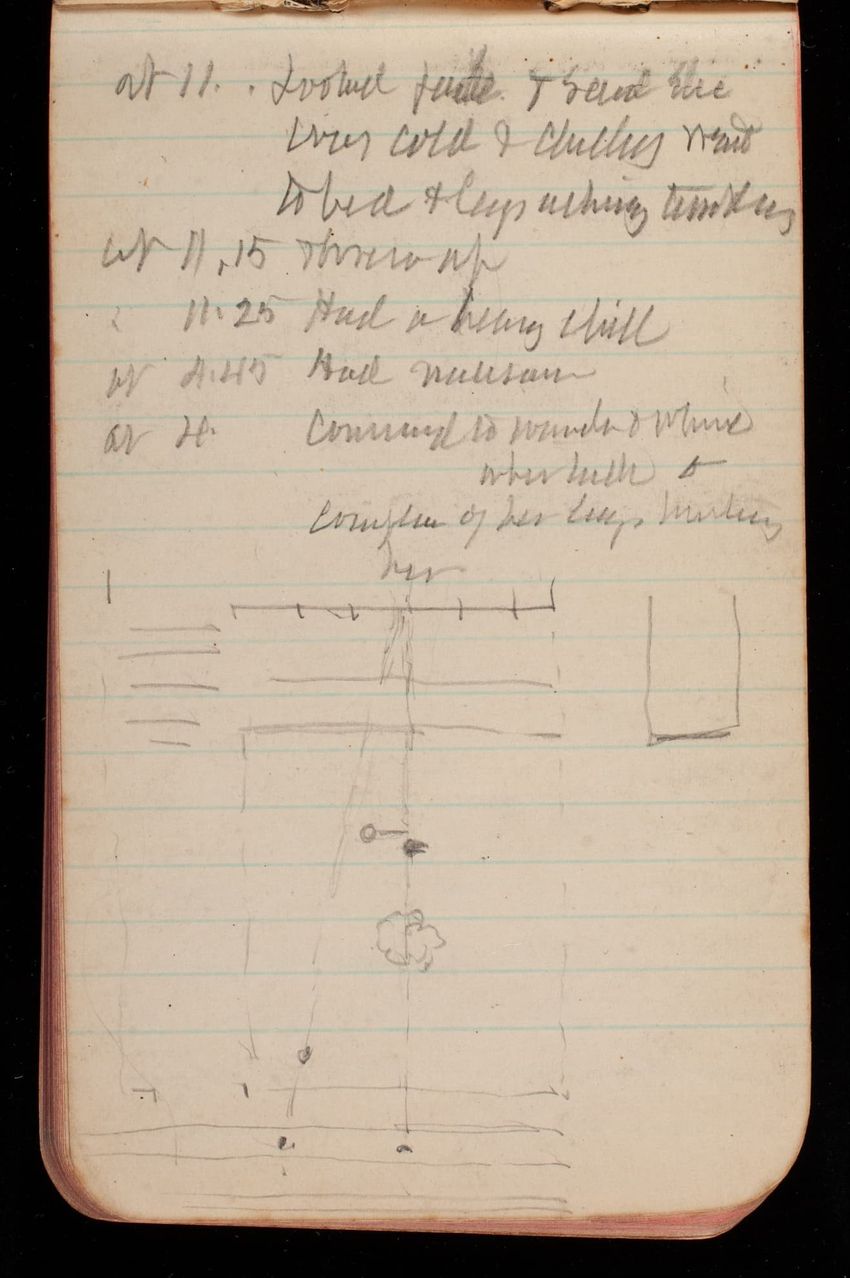 at 11. . Looked pale. & said She
was cold & chilly went
to bed & legs aching
at 11.15 threw up
" 11.25 Had a heavy chill
at 4.45 Had
at 4. Commenced to wander & whine
&
complain of her legs hurting
her